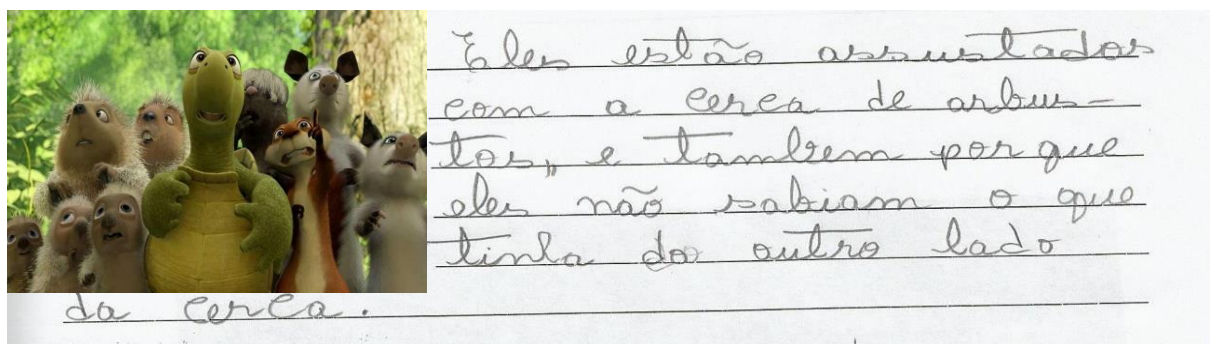 Eles estão assustados
com a cerca de arbus-
tos, e tambem por que
eles não sabiam o que
tinha do outro lado
da cerca.